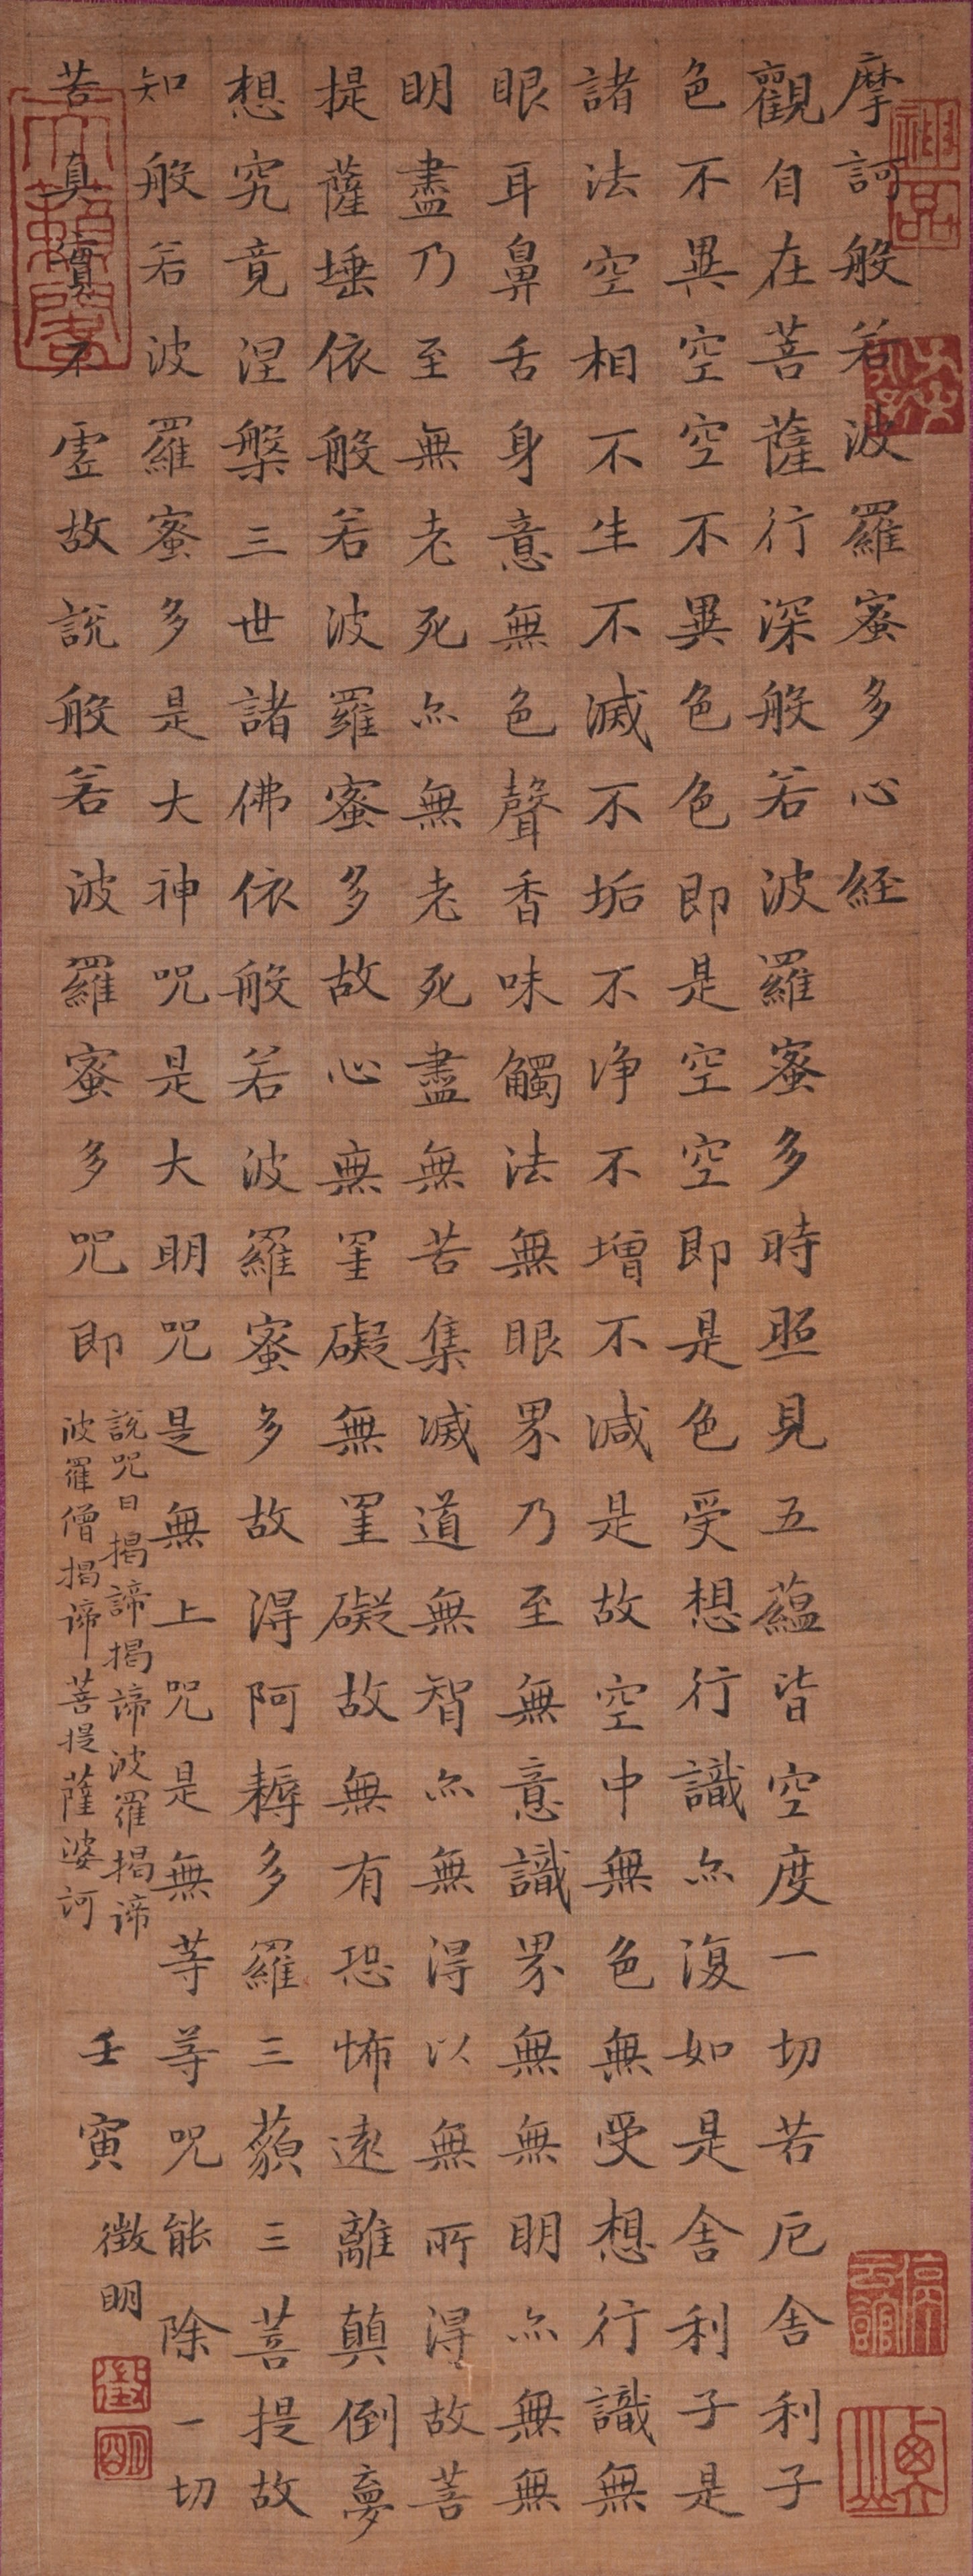 神品
摩訶般若波羅蜜多心經
觀自在菩薩行深般若波羅蜜多時照見五蘊皆空度一切苦厄舍利子
色不異空空不異色色即是空空即是色受想行識亦復如是舍利子是
諸法空相不生不滅不垢不淨不增不減是故空中無色無受想行識無
眼耳鼻舌身意無色聲香味觸法無眼界乃至無意識界無無明亦無無
明盡乃至無老死亦無老死盡無苦集滅道無智亦無得以無所得故菩
提薩埵依般若波羅蜜多故心無罣礙無罣礙故無有恐怖遠離顛倒夢
想究竟涅槃三世諸佛依般若波羅蜜多故得阿耨多羅三藐三菩提故
知般若波羅蜜多是大神咒是大明咒是無上咒是無等等咒能除一切
苦真實不虛故說般若波羅蜜多咒即
說咒曰揭諦揭諦波羅揭諦
波羅僧揭諦菩提薩婆訶
壬寅徵明
徵明
天籟閣
停雲館